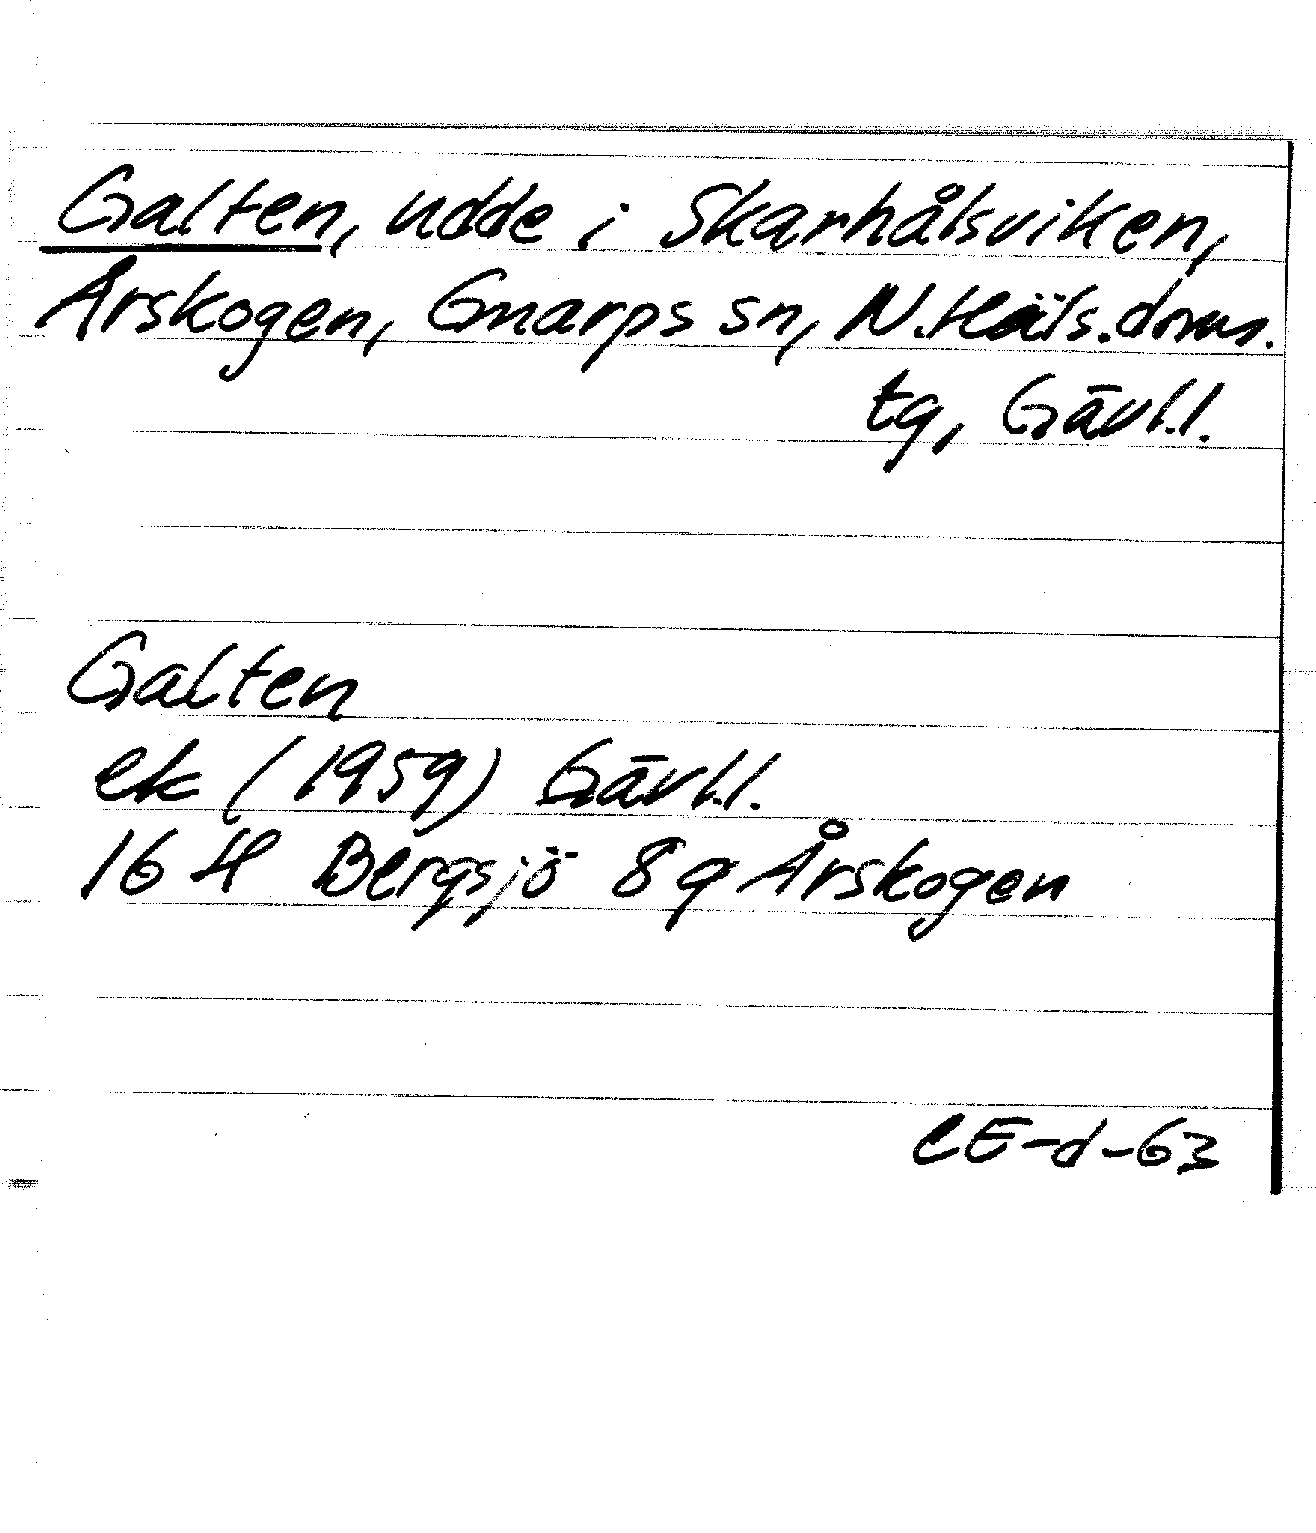 Galten, udde i Skarhålsviken,
Årskogen, Gnarps sn, N.Häls.doms.
tg, Gävl.l.
Galten
ek (1959) Gävl.l.
16 H Bergsjö 8 g Årskogen
CE-d-63